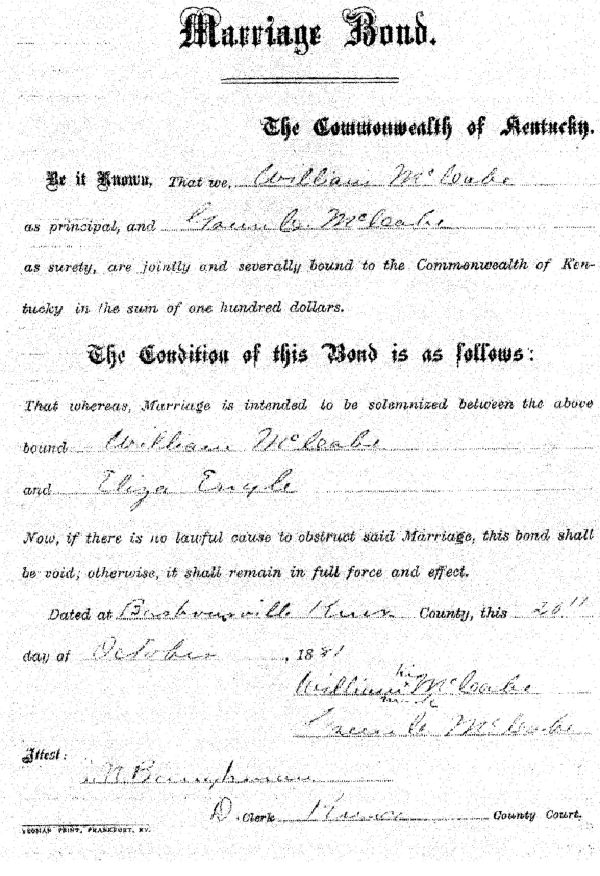 Marriage Bond.
The Commonwealth of Kentucky.
Be it Known, That we, William McCabe
as principal, and McCabe
as surety, are jointly and severally bound to the Commonwealth of Ken-
tucky in the sum of one hundred dollars.
The Condition of this Bond is as follows:
That whereas, Marriage is intended to be solemnized between the above
bound William McCabe
and Eliza Engle
Now, if there is no lawful cause to obstruct said Marriage, this bond shall
be void; otherwise, it shall remain in full force and effect.
Dated at Barbourville Knox County, this 20"
day of October, 1881
his
William McCabe
mark
McCabe
Attest:
D. Clerk Knox County Court.
YEOMAN PRINT, FRANKFORT, KY.